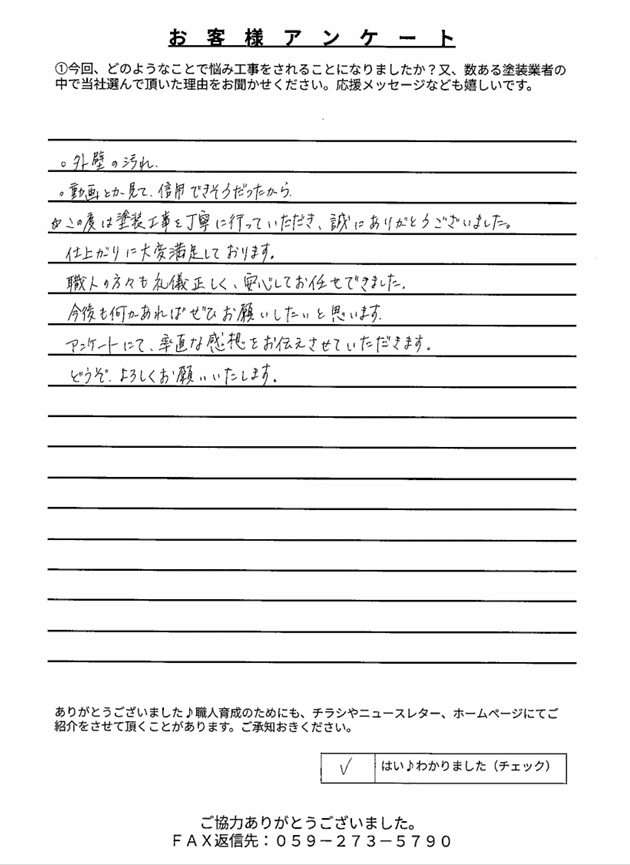 お客様アンケート
①今回、どのようなことで悩み工事をされることになりましたか？又、数ある塗装業者の
中で当社選んで頂いた理由をお聞かせください。応援メッセージなども嬉しいです。
。外壁の汚れ.
。動画とか見て、信用できそうだったから.
※この度は塗装工事を丁寧に行っていただき、誠にありがとうございました。
仕上がりに大変満足しております。
職人の方々も礼儀正しく、安心してお任せできました.
今後も何かあればぜひお願いしたいと思います.
アンケートにて、率直な感想をお伝えさせていただきます。
どうぞ.よろしくお願いいたします。
ありがとうございました♪職人育成のためにも、チラシやニュースレター、ホームページにてご
紹介をさせて頂くことがあります。ご承知おきください。
✓ はい♪わかりました（チェック）
ご協力ありがとうございました。
ＦＡＸ返信先：０５９－２７３－５７９０